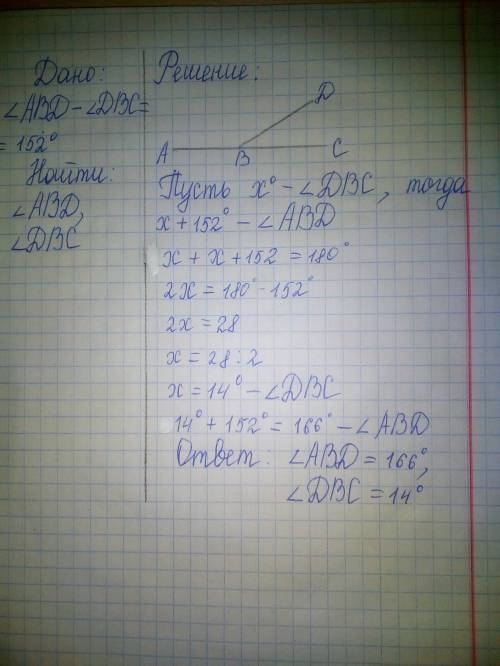 Дано:
∠ABD - ∠DBC =
= 152°
Найти:
∠ABD,
∠DBC
Решение:
D
A B C
Пусть x° - ∠DBC, тогда
x + 152° - ∠ABD
x + x + 152 = 180°
2x = 180° - 152°
2x = 28
x = 28 : 2
x = 14° - ∠DBC
14° + 152° = 166° - ∠ABD
Ответ: ∠ABD = 166°,
∠DBC = 14°